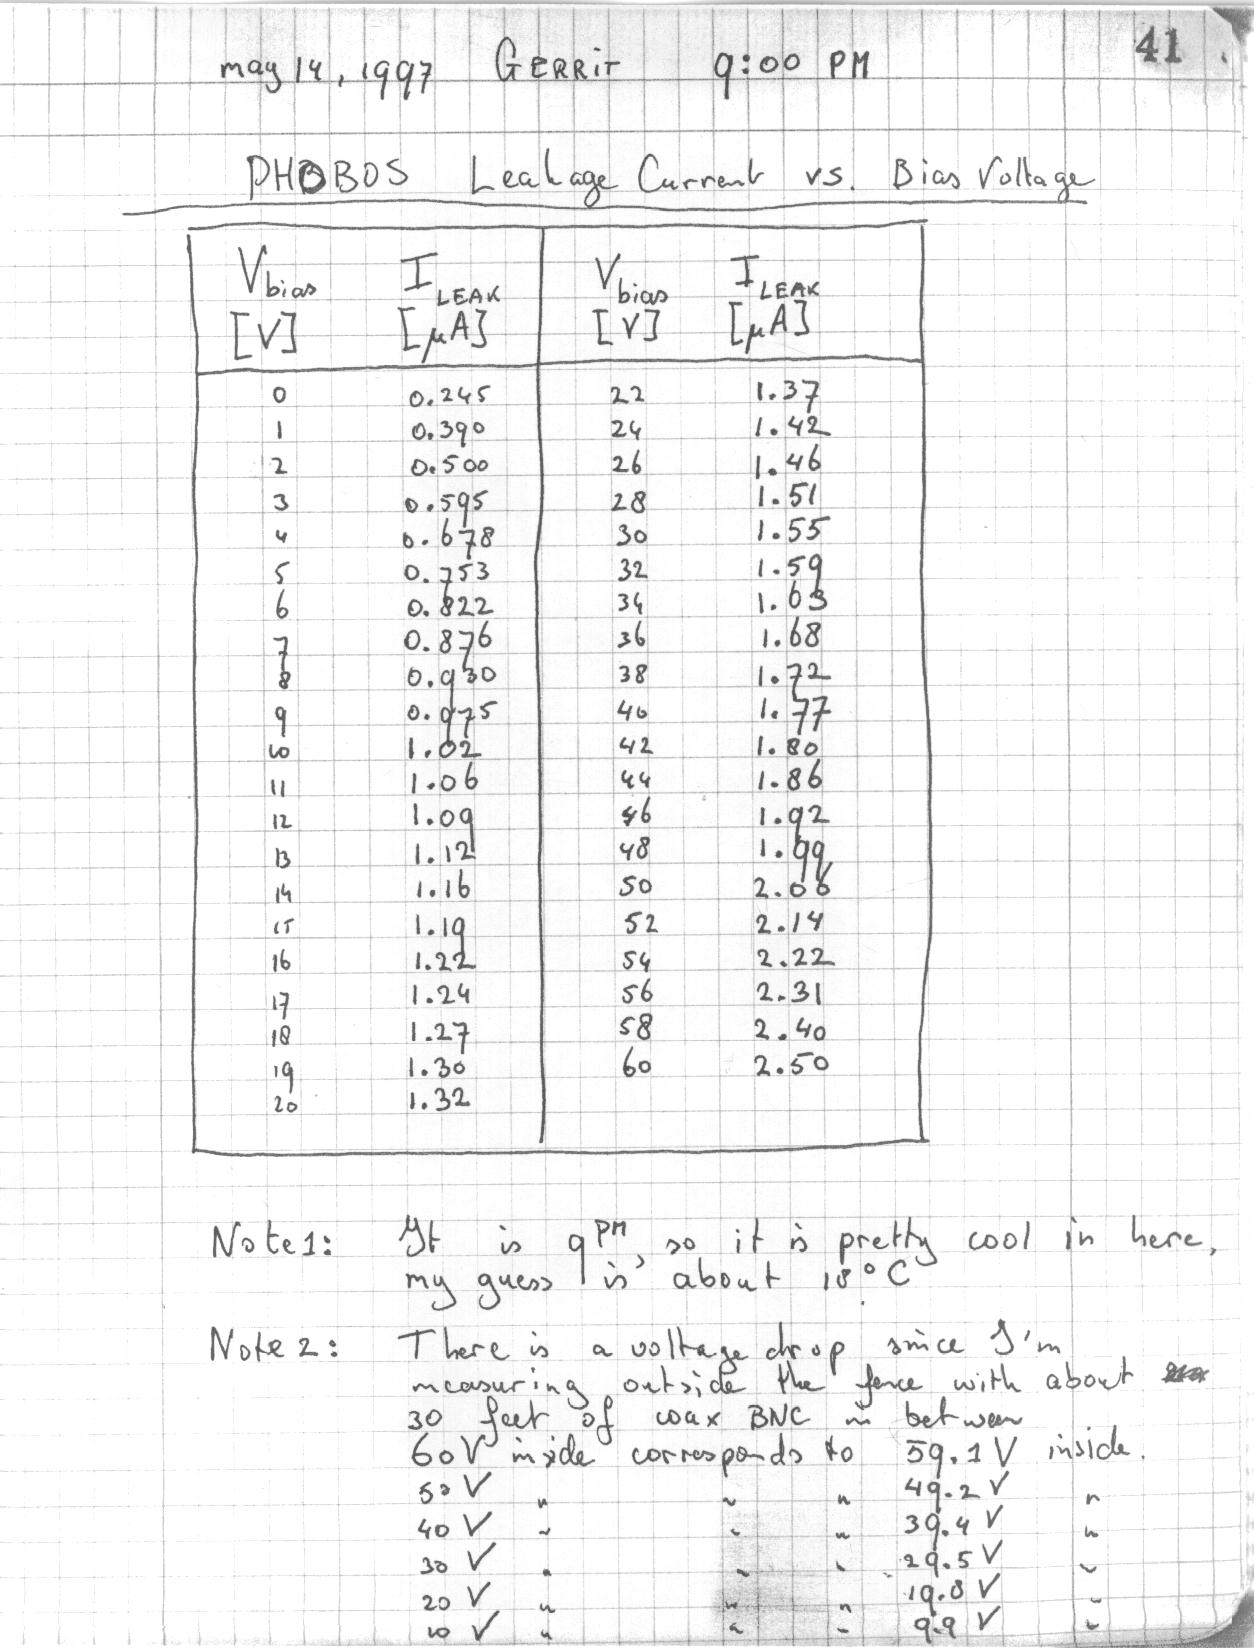 41
may 14, 1997 GERRiT 9:00 PM
PHOBOS Leakage Current vs. Bias Voltage
Vbias ILEAK Vbias ILEAK
[V] [μA] [V] [μA]
0 0.245 22 1.37
1 0.390 24 1.42
2 0.500 26 1.46
3 0.595 28 1.51
4 0.678 30 1.55
5 0.753 32 1.59
6 0.822 34 1.63
7 0.876 36 1.68
8 0.930 38 1.72
9 0.975 40 1.77
10 1.02 42 1.80
11 1.06 44 1.86
12 1.09 46 1.92
13 1.12 48 1.99
14 1.16 50 2.06
15 1.19 52 2.14
16 1.22 54 2.22
17 1.24 56 2.31
18 1.27 58 2.40
19 1.30 60 2.50
20 1.32
Note 1: It is 9PM, so it is pretty cool in here,
my guess is about 18°C
Note 2: There is a voltage drop since I'm
measuring outside the fence with about
30 feet of coax BNC in between
60V inside corresponds to 59.1 V inside.
50 V " " " 49.2 V "
40 V " " " 39.4 V "
30 V " " " 29.5 V "
20 V " " " 19.8 V "
10 V " " " 9.9 V "